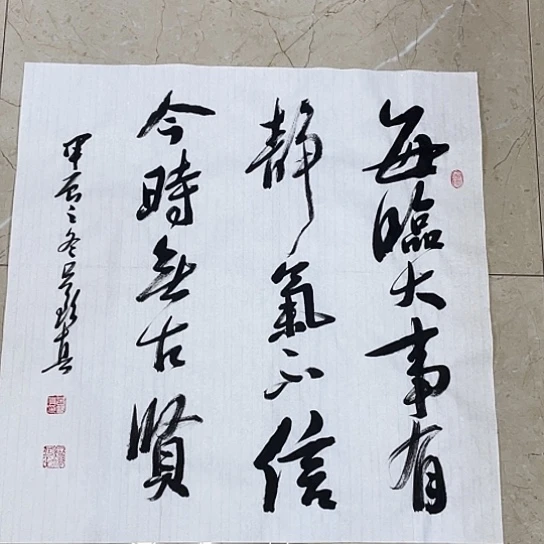 每臨大事有
靜氣不信
今時無古賢
甲辰之冬吳